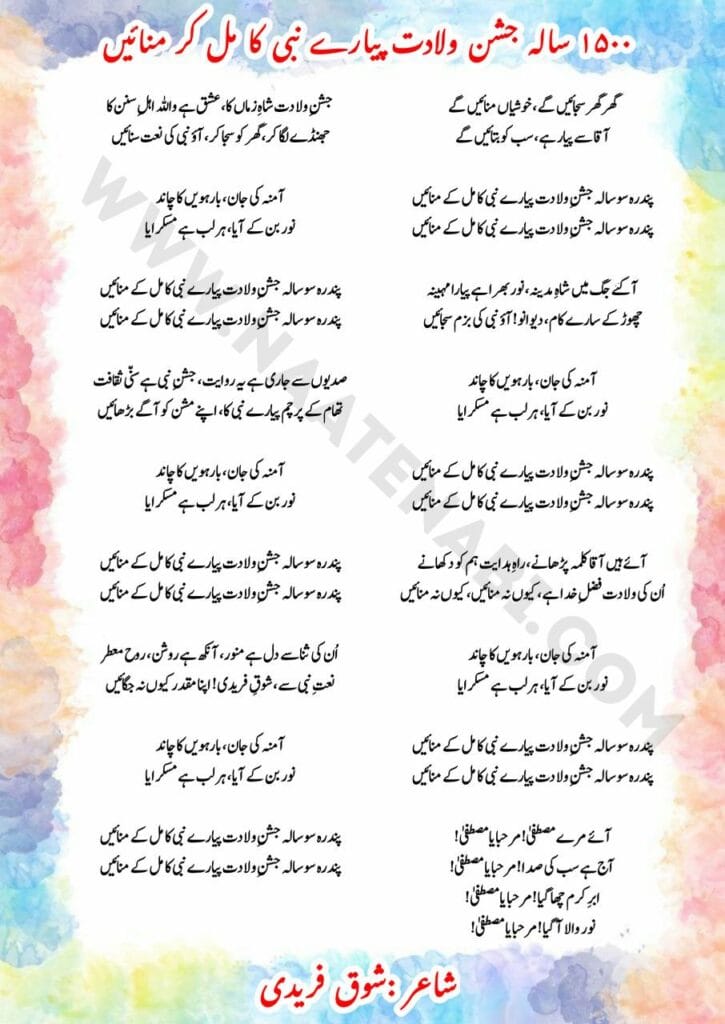 ۱۵۰۰ سالہ جشن ولادت پیارے نبی کا مل کر منائیں
گھر گھر سجائیں گے، خوشیاں منائیں گے
آقا سے پیار ہے، سب کو بتائیں گے
پندرہ سو سالہ جشنِ ولادت پیارے نبی کا مل کے منائیں
پندرہ سو سالہ جشنِ ولادت پیارے نبی کا مل کے منائیں
آ گئے جگ میں شاہِ مدینہ، نور بھرا ہے پیارا مہینہ
چھوڑ کے سارے کام، دیوانو! آؤ نبی کی بزم سجائیں
آمنہ کی جان، بارہویں کا چاند
نور بن کے آیا، ہر لب ہے مسکرایا
پندرہ سو سالہ جشنِ ولادت پیارے نبی کا مل کے منائیں
پندرہ سو سالہ جشنِ ولادت پیارے نبی کا مل کے منائیں
آئے ہیں آقا کلمہ پڑھانے، راہِ ہدایت ہم کو دکھانے
اُن کی ولادت فضلِ خدا ہے، کیوں نہ منائیں، کیوں نہ منائیں
آمنہ کی جان، بارہویں کا چاند
نور بن کے آیا، ہر لب ہے مسکرایا
پندرہ سو سالہ جشنِ ولادت پیارے نبی کا مل کے منائیں
پندرہ سو سالہ جشنِ ولادت پیارے نبی کا مل کے منائیں
آئے مرے مصطفیٰ! مرحبا یا مصطفیٰ!
آج ہے سب کی صدا! مرحبا یا مصطفیٰ!
ابرِ کرم چھا گیا! مرحبا یا مصطفیٰ!
نور والا آ گیا! مرحبا یا مصطفیٰ!
جشنِ ولادت شاہِ زماں کا، عشق ہے واللہ اہلِ سنن کا
جھنڈے لگا کر، گھر کو سجا کر، آؤ نبی کی نعت سنائیں
آمنہ کی جان، بارہویں کا چاند
نور بن کے آیا، ہر لب ہے مسکرایا
پندرہ سو سالہ جشنِ ولادت پیارے نبی کا مل کے منائیں
پندرہ سو سالہ جشنِ ولادت پیارے نبی کا مل کے منائیں
صدیوں سے جاری ہے یہ روایت، جشنِ نبی ہے سنّی ثقافت
تھام کے پرچم پیارے نبی کا، اپنے مشن کو آگے بڑھائیں
آمنہ کی جان، بارہویں کا چاند
نور بن کے آیا، ہر لب ہے مسکرایا
پندرہ سو سالہ جشنِ ولادت پیارے نبی کا مل کے منائیں
پندرہ سو سالہ جشنِ ولادت پیارے نبی کا مل کے منائیں
اُن کی ثنا سے دل ہے منور، آنکھ ہے روشن، روح معطر
نعتِ نبی سے، شوقِ فریدی! اپنا مقدر کیوں نہ جگائیں
آمنہ کی جان، بارہویں کا چاند
نور بن کے آیا، ہر لب ہے مسکرایا
پندرہ سو سالہ جشنِ ولادت پیارے نبی کا مل کے منائیں
پندرہ سو سالہ جشنِ ولادت پیارے نبی کا مل کے منائیں
شاعر: شوق فریدی
WWW.NAATENABI.COM